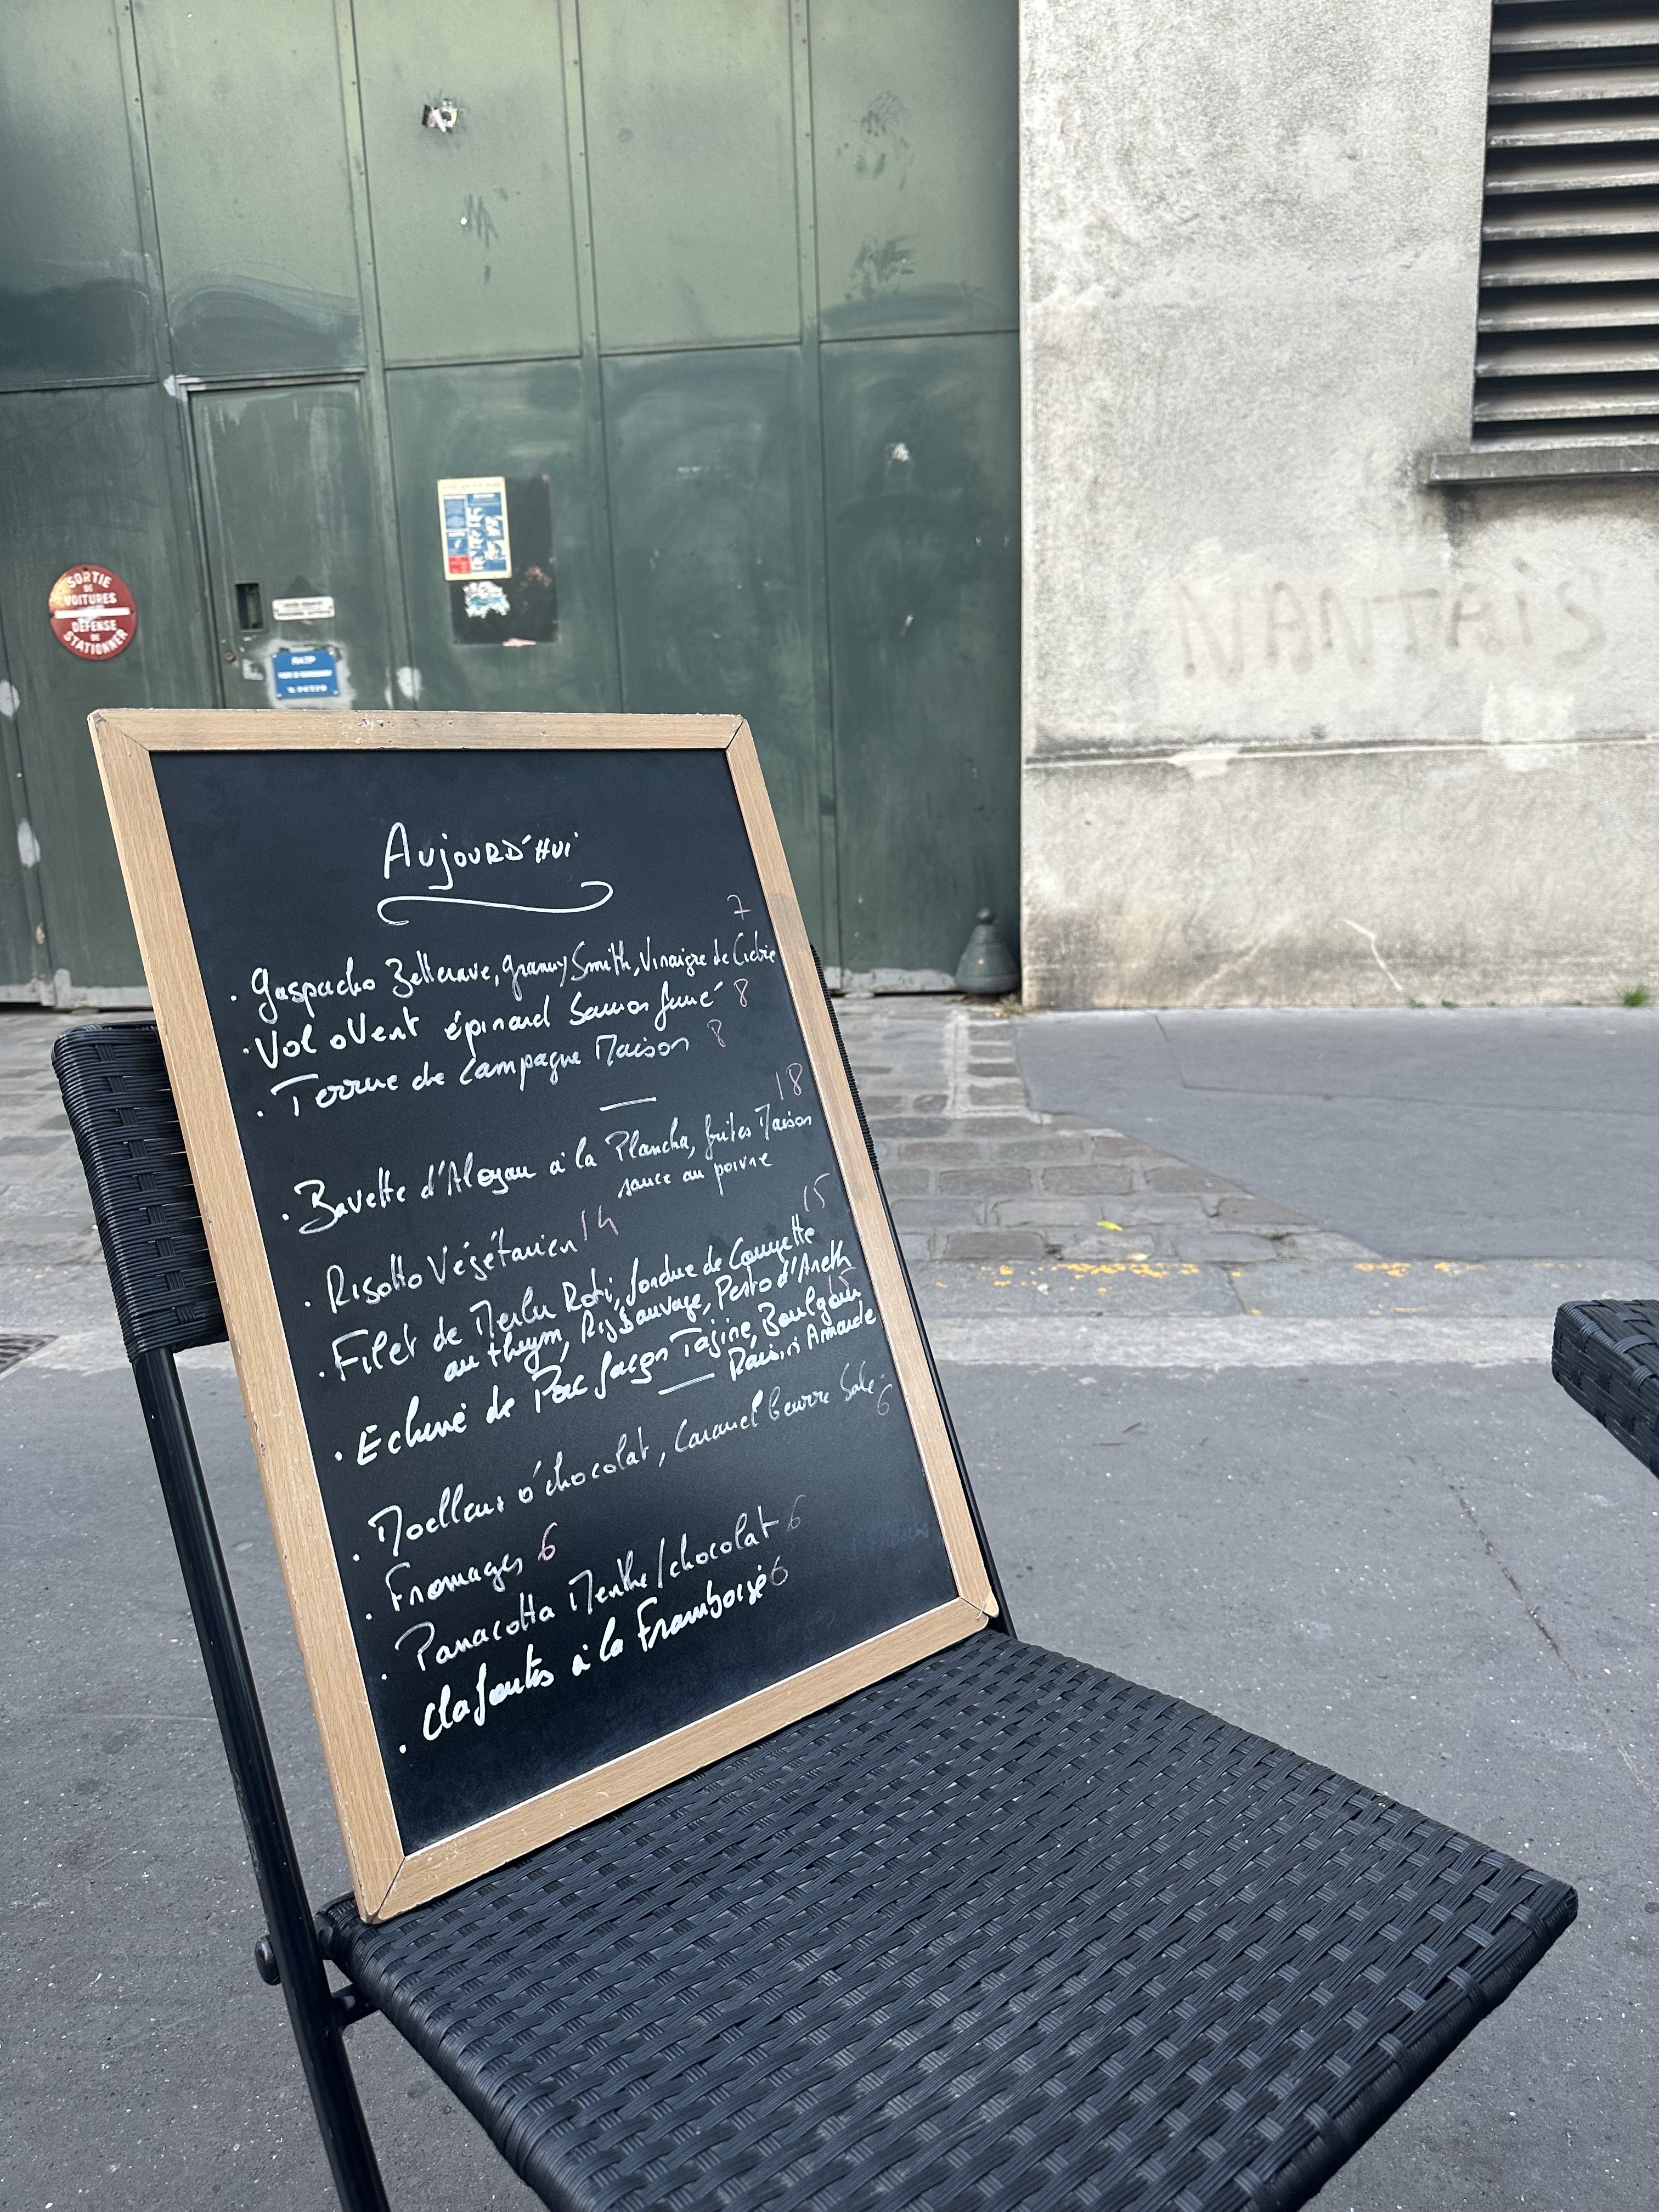 SORTIE
DE
VOITURES
DÉFENSE
DE
STATIONNER
RATP
NANTAIS
Aujourd'hui
7
. Gaspacho Betterave, Granny Smith, Vinaigre de Cidre
. Vol o Vent épinard Saumon fumé 8
. Terrine de Campagne Maison 8
18
. Bavette d'Aloyau à la Plancha, frites Maison
sauce au poivre
. Risotto Végétarien 14
15
. Filet de Merlu Roti, fondue de Courgette
au thym, Riz Sauvage, Pesto d'Aneth
15
. Echine de Porc façon Tajine, Boulgour
Raisin Amande
. Moelleux ô chocolat, Caramel beurre Salé
6
. Fromages 6
. Panacotta Menthe/chocolat 6
. Clafoutis à la Framboise 6